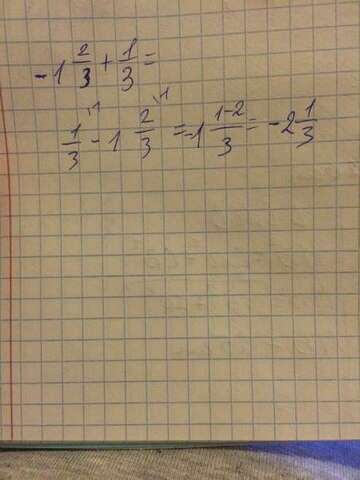 -1 2/3 + 1/3 =
1/3 \1 - 1 2/3 \1 = -1 (1-2)/3 = -2 1/3